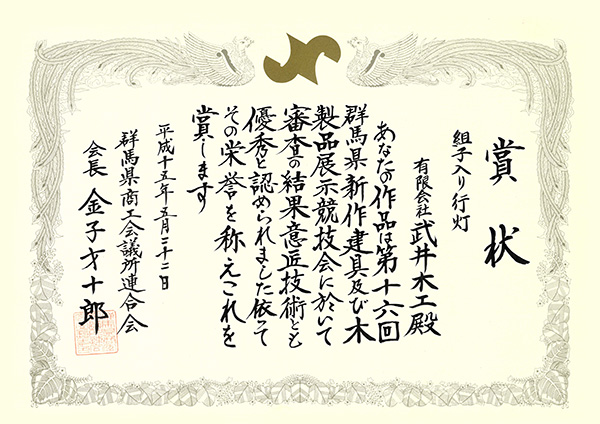 賞状
組子入り行灯
有限会社 武井木工殿
あなたの作品は第十六回
群馬県新作建具及び木
製品展示競技会に於いて
審査の結果意匠技術とも
優秀と認められました依って
その栄誉を称えこれを
賞します
平成十五年五月二十二日
群馬県商工会議所連合会
会長 金子才十郎